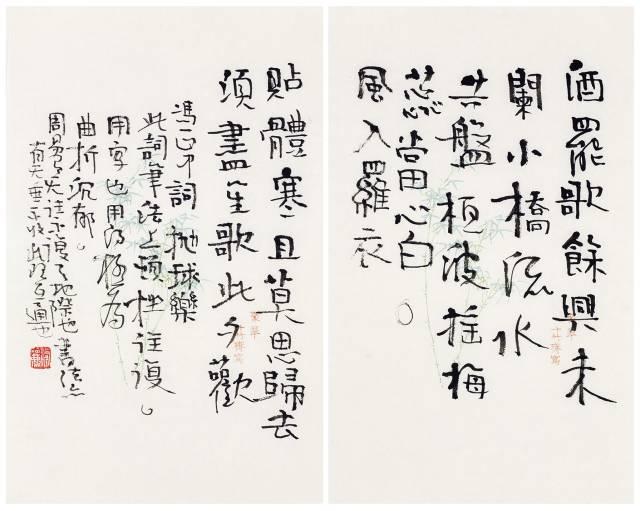 酒罷歌餘興未
闌小橋流水
共盤桓波搖梅
蕊當心白
風入羅衣
貼體寒且莫思歸去
須盡笙歌此夕歡
馮正中詞拋球樂
此詞筆法上頓挫往復
用字也用得極為
曲折沉郁
周易无往不復天地際也書法亦
有无垂不收此理可通也